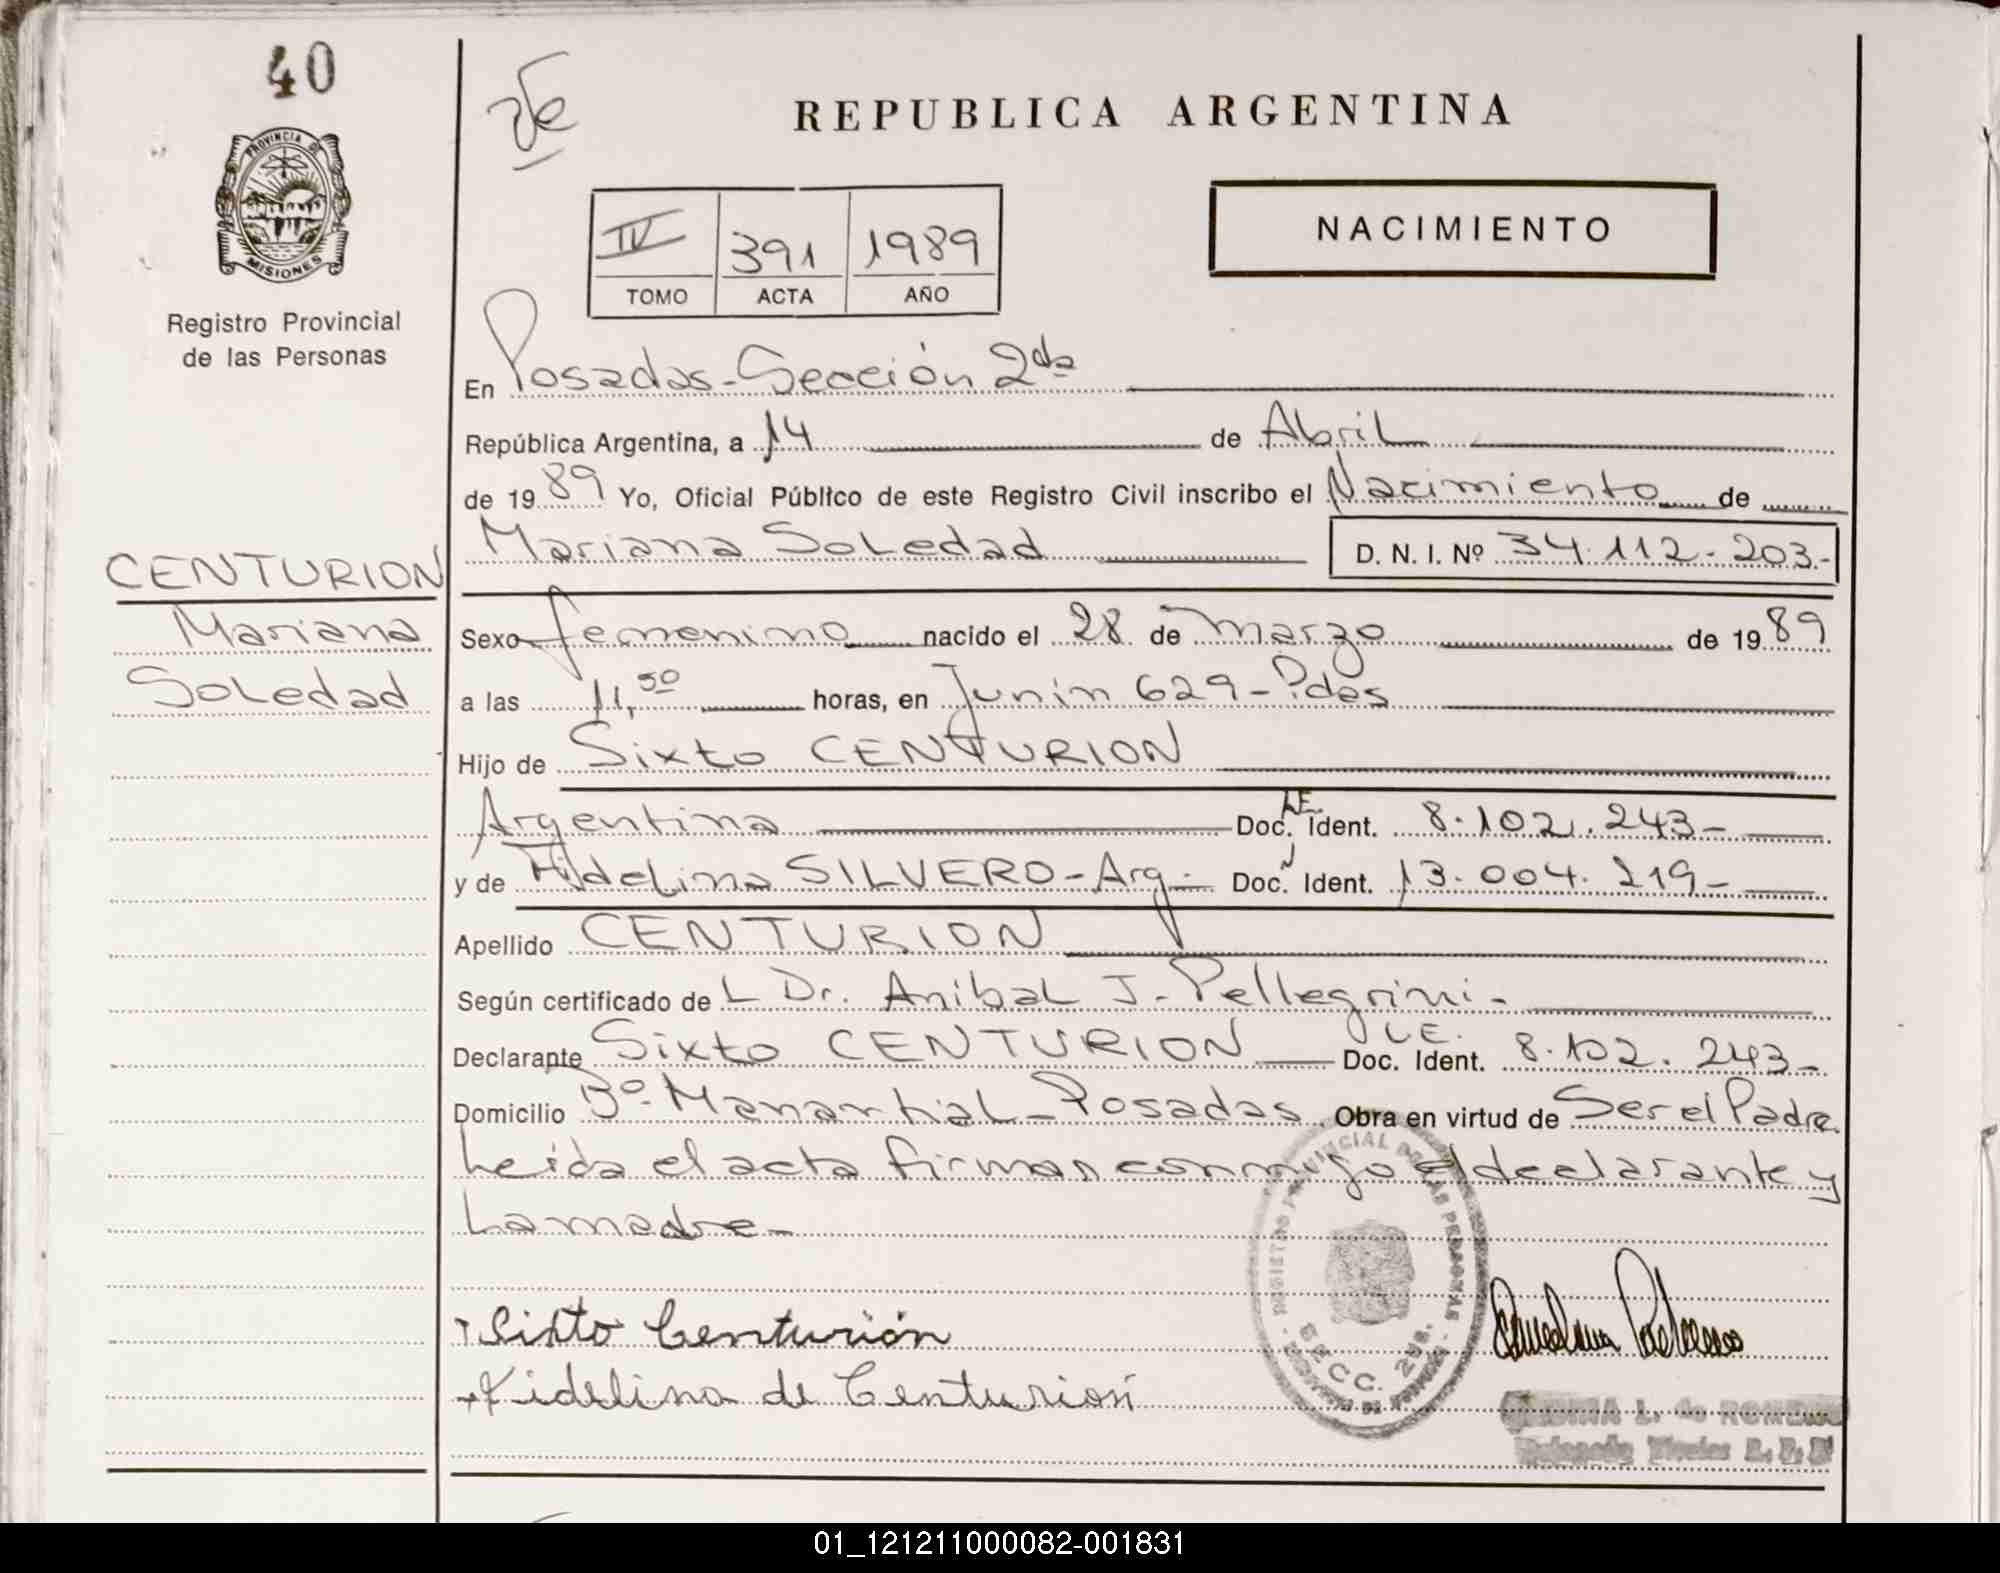 40
PROVINCIA DE
MISIONES
Registro Provincial
de las Personas
REPUBLICA ARGENTINA
NACIMIENTO
IV 391 1989
TOMO ACTA AÑO
En Posadas-Sección 2da
República Argentina, a 14 de Abril
de 1989 Yo, Oficial Público de este Registro Civil inscribo el Nacimiento de
Mariana Soledad D. N. I. Nº 34.112.203.-
CENTURION
Mariana
Soledad
Sexo femenino nacido el 28 de Marzo de 1989
a las 11,50 horas, en Junin 629-Pdas
Hijo de Sixto CENTURION
Argentina Doc. Ident. L.E. 8.102.243-
y de Fidelina SILVERO-Arg.- Doc. Ident. 13.004.219-
Apellido CENTURION
Según certificado de L Dr. Anibal J. Pellegrini-
Declarante Sixto CENTURION Doc. Ident. L.E. 8.102.243-
Domicilio Bº-Manantial-Posadas Obra en virtud de Ser el Padre.
Leida el acta firman conmigo el declarante y
La madre-
Sixto Centurión
Fidelina de Centurión
REGISTRO PROVINCIAL DE LAS PERSONAS
SECC. 2da.
L. de ROMERO
01_121211000082-001831